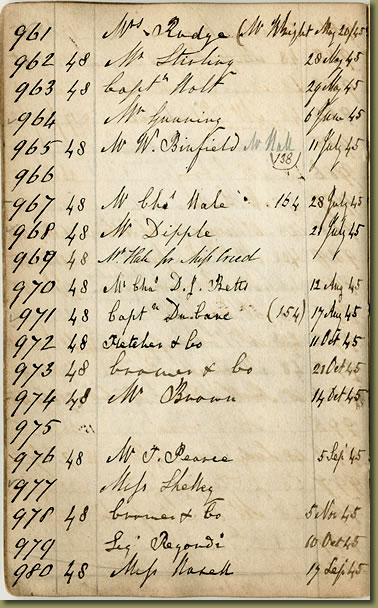 961 Mrs Rudge (Mr Wright May 20/45
962 48 Mr Stirling 28 May 45
963 48 Captn Holt 29 May 45
964 Mr Gunning 6 June 45
965 48 Mr W. Binfield Mr Hall V38 11 July 45
966
967 48 Mr Chas Hale 154 28 July 45
968 48 Mr Dipple 21 July 45
969 48 Mr Hale for Miss Creed
970 48 Mr Chas D. J. Betts 12 Aug 45
971 48 Captn Dunbane (154) 17 Aug 45
972 48 Fletcher & Co 11 Oct 45
973 48 Cramer & Co 21 Oct 45
974 48 Mr Brown 14 Oct 45
975
976 48 Mr F. Pearce 5 Sep 45
977 Miss Shelley
978 48 Cramer & Co 5 Nov 45
979 Sigr Regondi 10 Oct 45
980 48 Miss 17 Sep 45